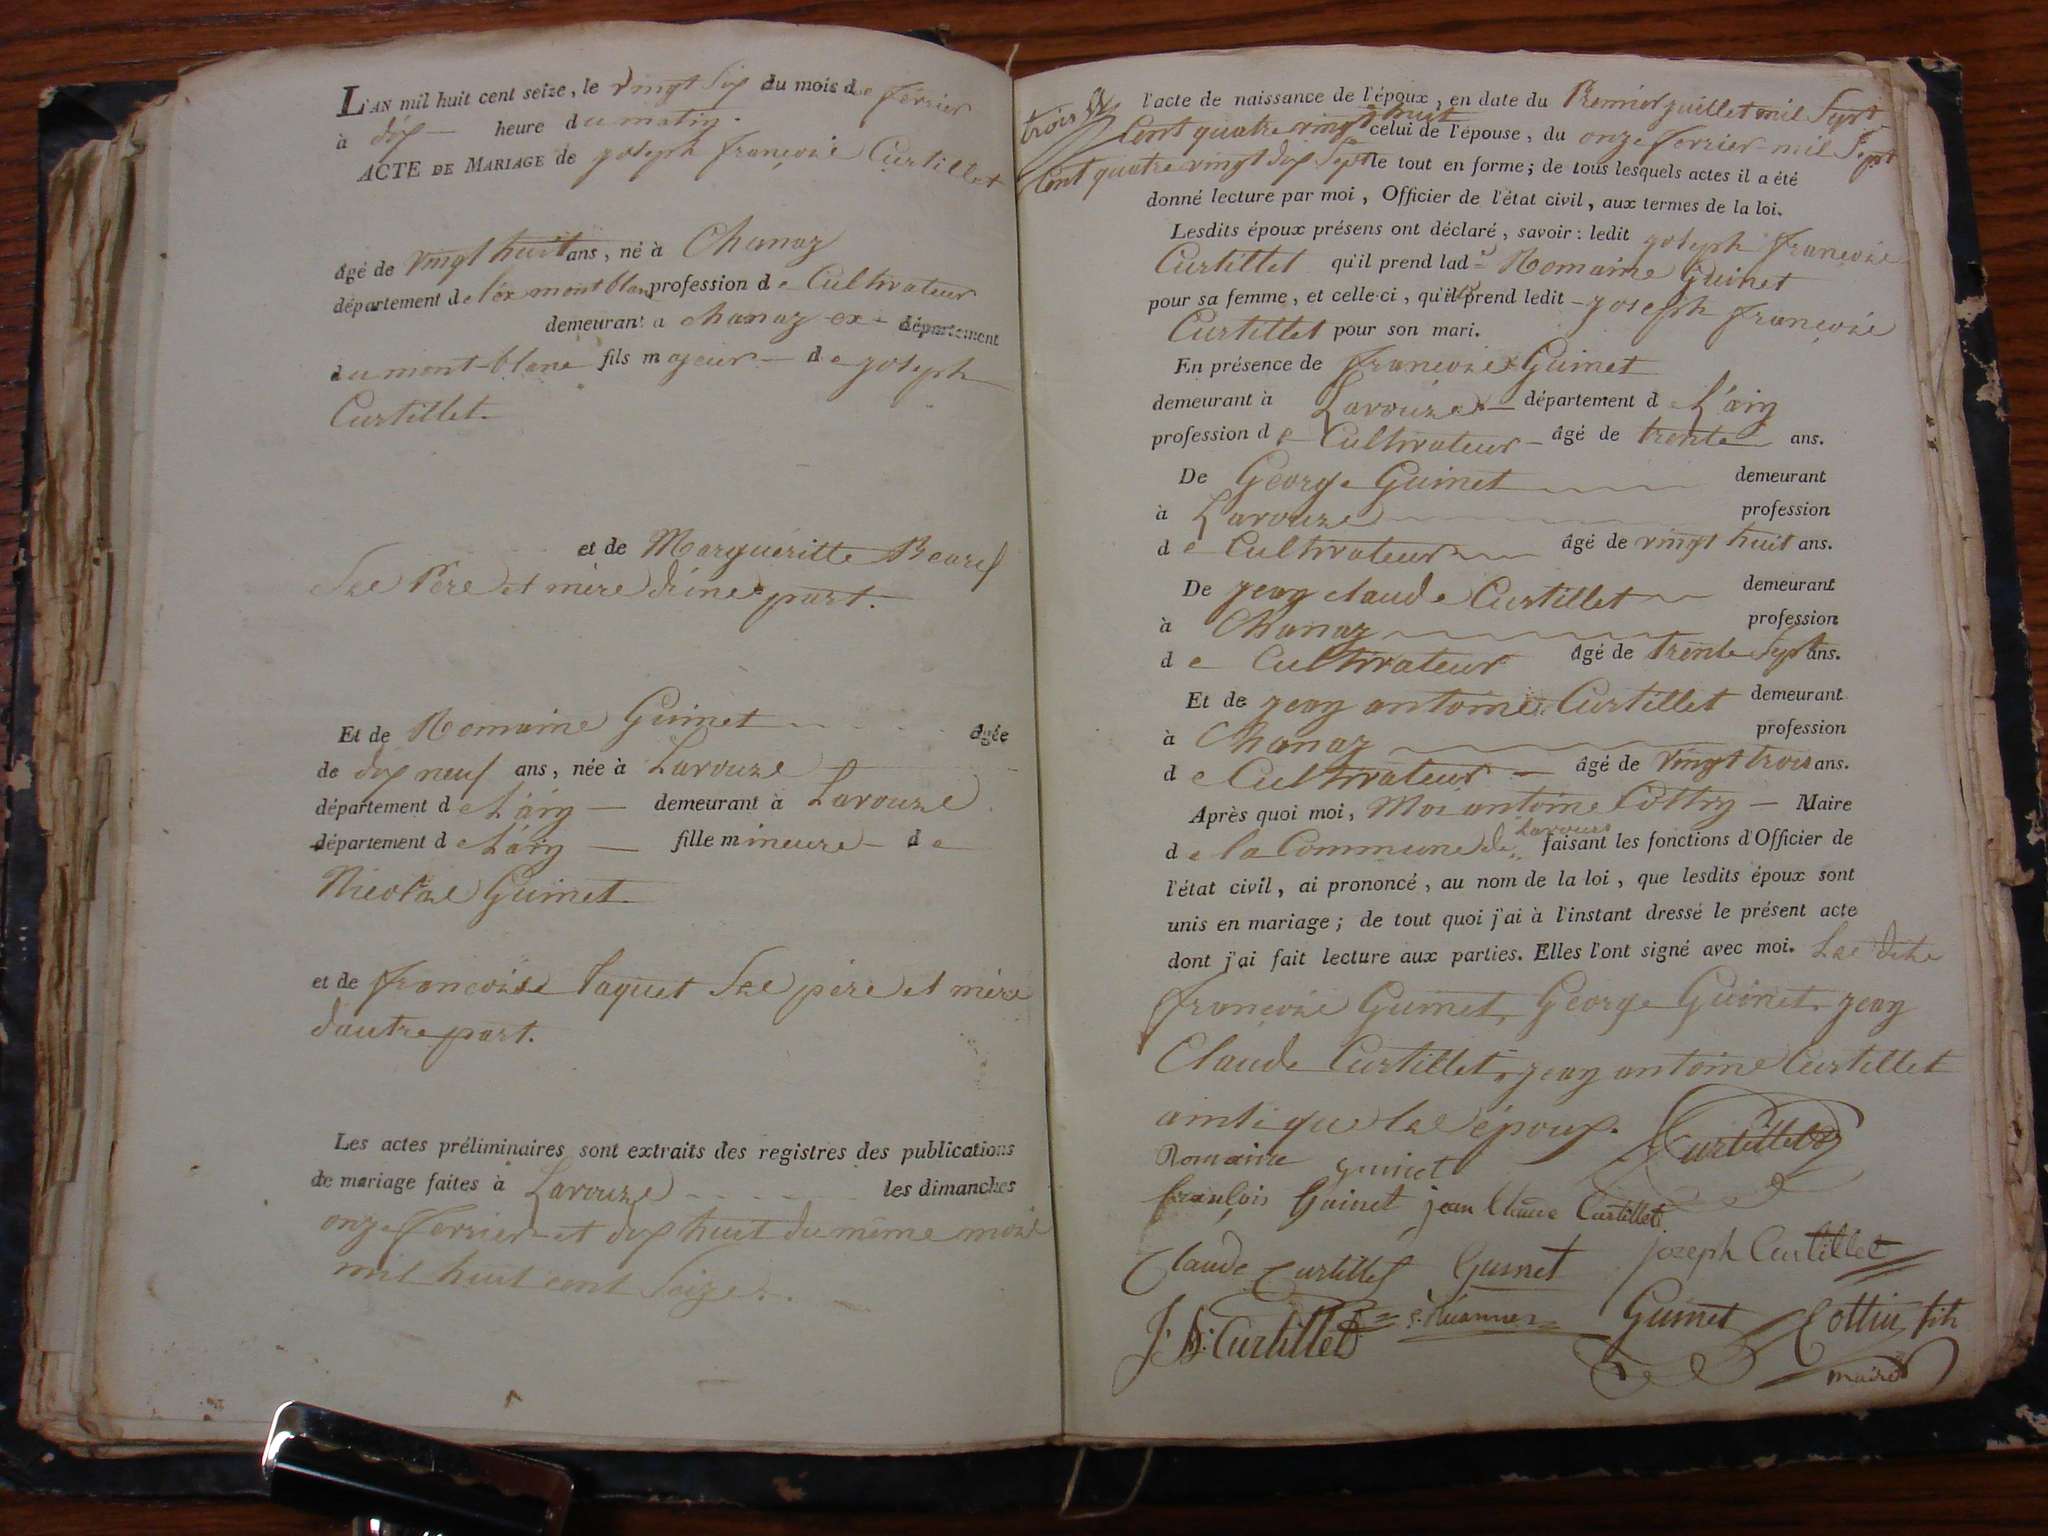 L'AN mil huit cent seize, le vingt six du mois de fevrier
à dix heure du matin.
ACTE DE MARIAGE de joseph françois Curtillet
âgé de vingt huit ans, né à Chanaz
département de l'ex montblanc profession de Cultivateur
demeurant a chanaz ex département
du mont-blanc fils majeur de joseph
Curtillet.
et de Marguéritte
Ses Père et mère d'une part.
Et de Romaine Guinet âgée
de dix neuf ans, née à Lavouze
département de L'ain demeurant à Lavouze
département de L'ain fille mineure de
Nicolas Guinet
et de françoise Taquet Ses père et mère
d'autre part.
Les actes préliminaires sont extraits des registres des publications
de mariage faites à Lavouze les dimanches
onze fevrier et dix huit du même mois
mil huit cent Seize.
trois
l'acte de naissance de l'époux, en date du Premier juillet mil Sept
Cent quatre vingt huit celui de l'épouse, du onze fevrier mil Sept
Cent quatre vingt dix Sept le tout en forme; de tous lesquels actes il a été
donné lecture par moi, Officier de l'état civil, aux termes de la loi.
Lesdits époux présens ont déclaré, savoir: ledit joseph françois
Curtillet qu'il prend lad Romaine Guinet
pour sa femme, et celle-ci, qu'il prend ledit joseph françois
Curtillet pour son mari.
En présence de françois Guinet
demeurant à Lavouze département de L'ain
profession de Cultivateur âgé de trente ans.
De George Guinet demeurant
à Lavouze profession
de Cultivateur âgé de vingt huit ans.
De jean claude Curtillet demeurant
à Chanaz profession
de Cultivateur âgé de trente Sept ans.
Et de jean antoine Curtillet demeurant
à Chanaz profession
de Cultivateur âgé de vingt trois ans.
Après quoi moi, antoine Maire
de la Commune de Lavours faisant les fonctions d'Officier de
l'état civil, ai prononcé, au nom de la loi, que lesdits époux sont
unis en mariage; de tout quoi j'ai à l'instant dressé le présent acte
dont j'ai fait lecture aux parties. Elles l'ont signé avec moi. Les dits
françois Guinet, George Guinet, jean
Claude Curtillet, jean antoine Curtillet
ainsi que les époux.
Curtillet
Romaine Guinet
françois Guinet jean Claude Curtillet
Claude Curtillet Guinet joseph Curtillet
J. Curtillet Guinet Cottin fils
maire